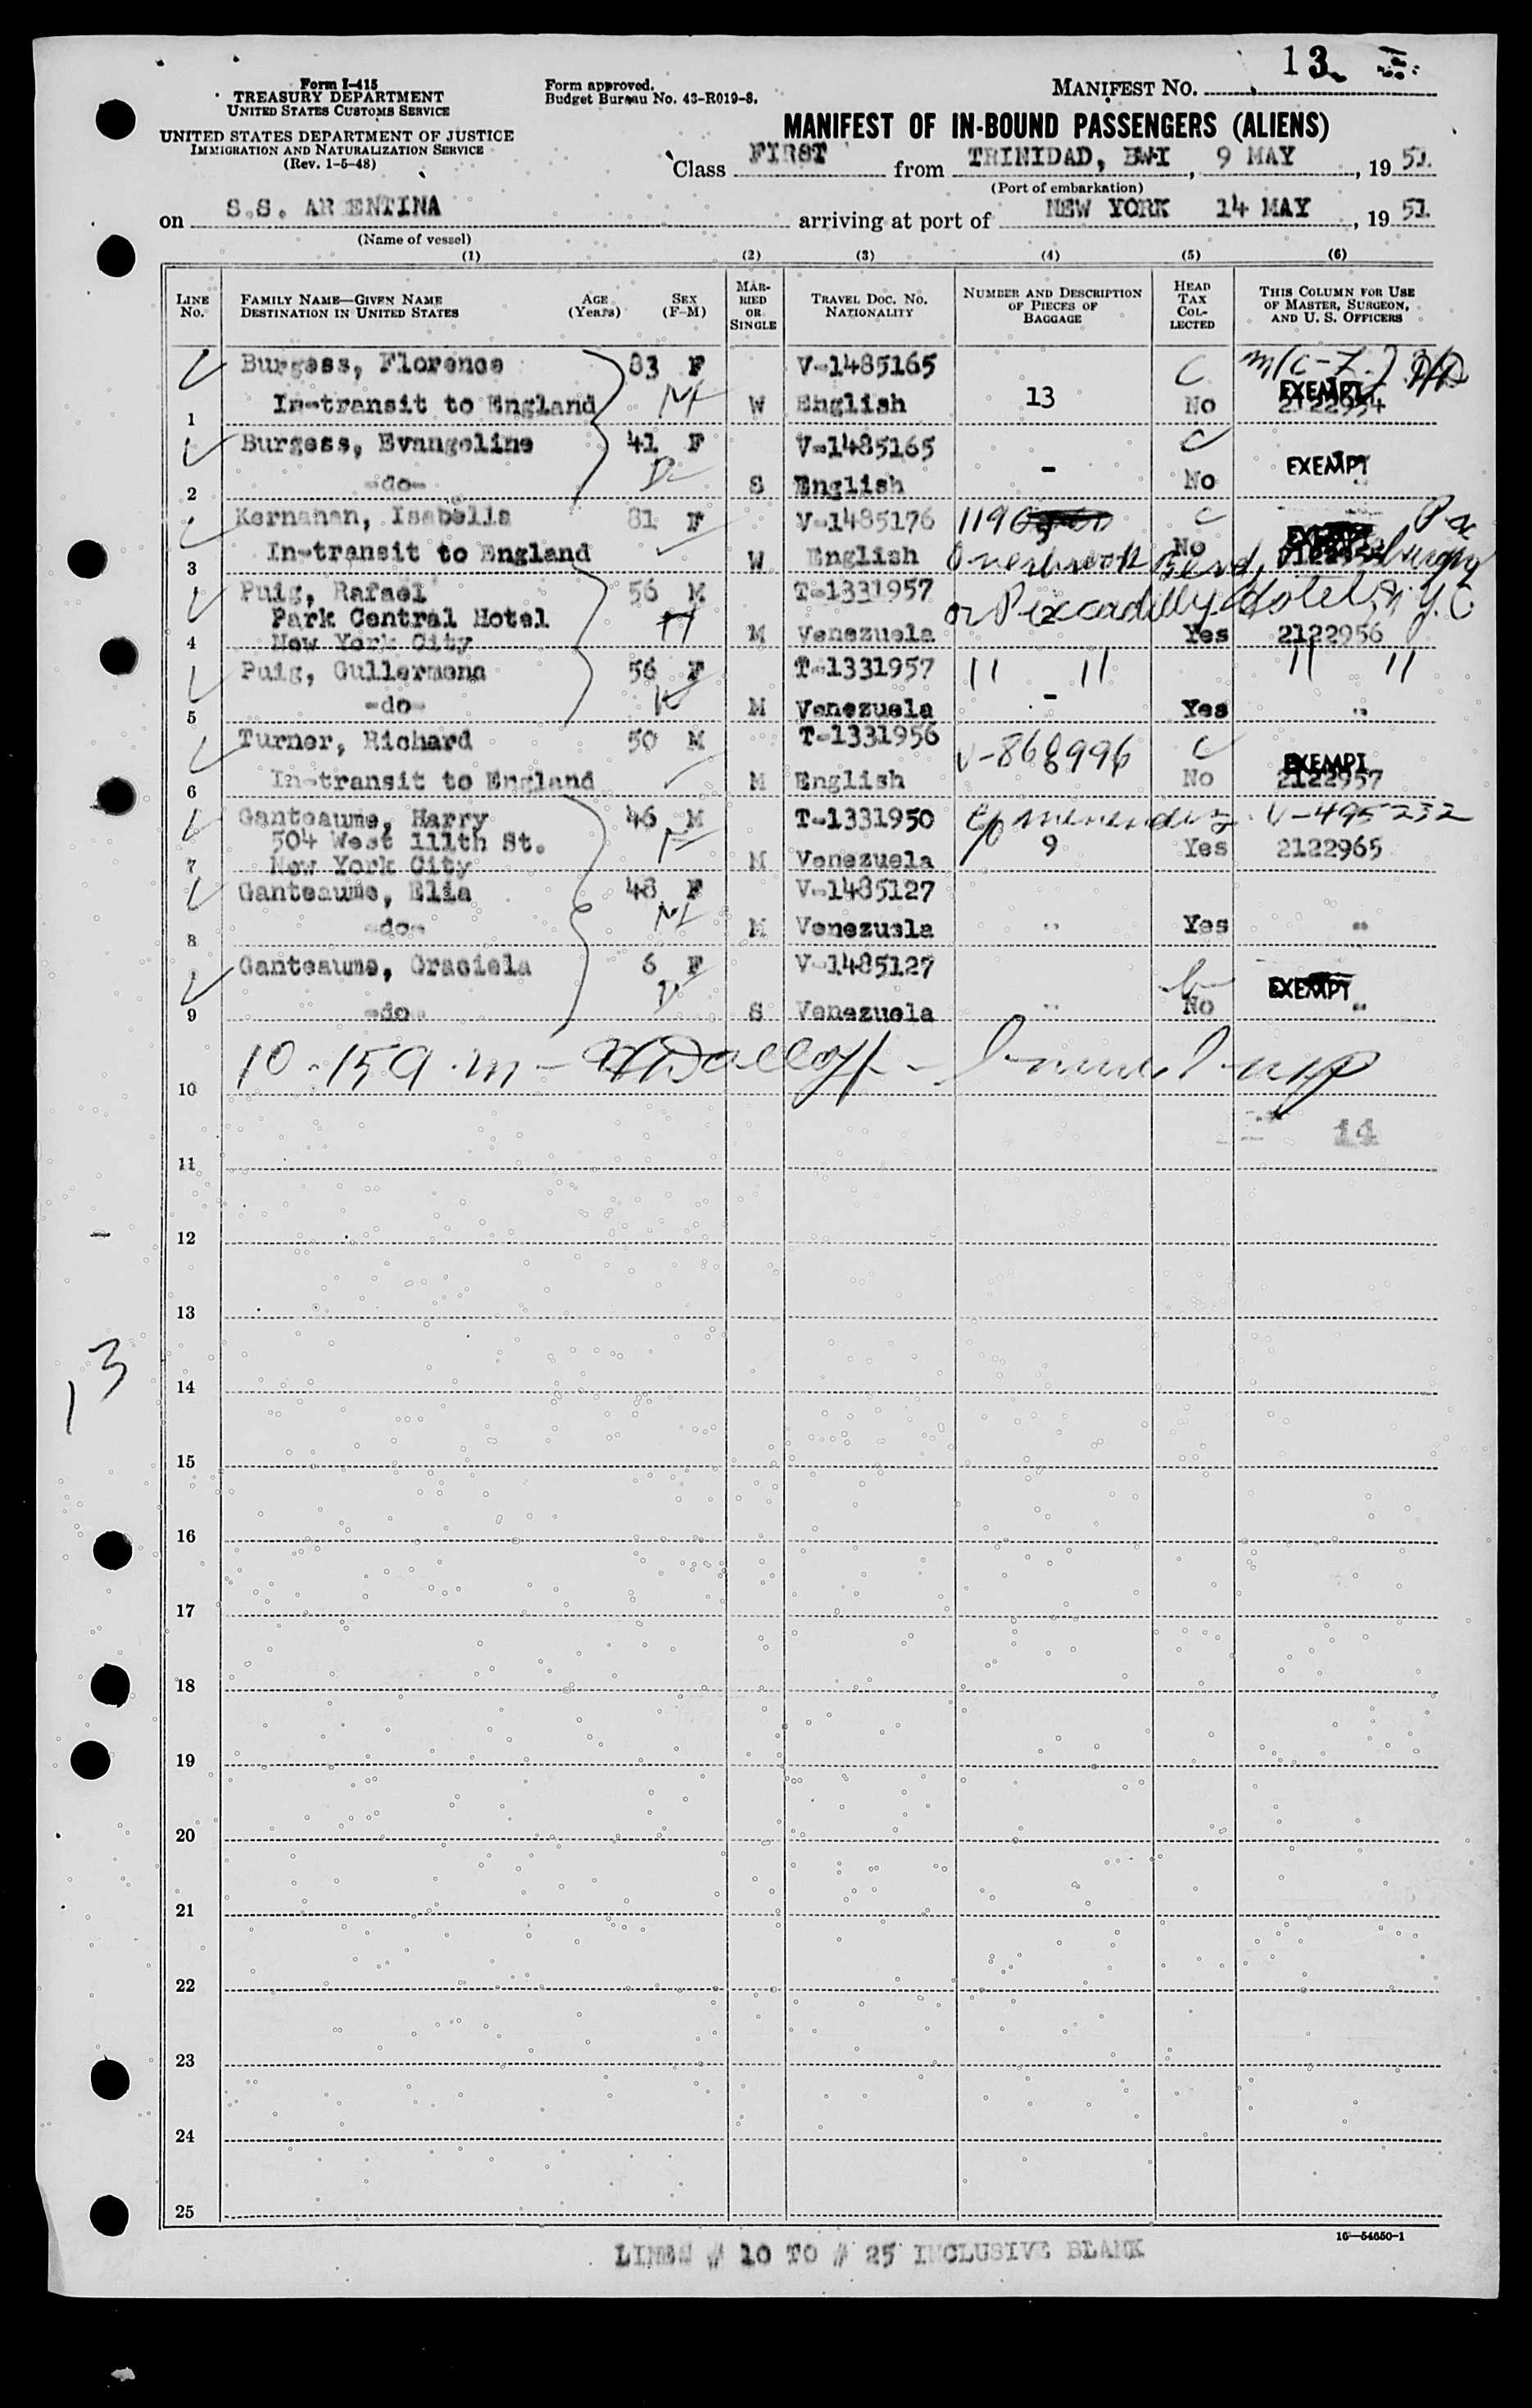 13
Form I-415
TREASURY DEPARTMENT
UNITED STATES CUSTOMS SERVICE
UNITED STATES DEPARTMENT OF JUSTICE
IMMIGRATION AND NATURALIZATION SERVICE
(Rev. 1-5-48)
Form approved.
Budget Bureau No. 43-R019-8.
MANIFEST NO.
MANIFEST OF IN-BOUND PASSENGERS (ALIENS)
Class FIRST from TRINIDAD, BWI, 9 MAY, 1951
(Port of embarkation)
on S.S. ARGENTINA arriving at port of NEW YORK 14 MAY, 1951
(Name of vessel)
(1) (2) (3) (4) (5) (6)
LINE No. FAMILY NAME—GIVEN NAME DESTINATION IN UNITED STATES AGE (Years) SEX (F-M) MARRIED OR SINGLE TRAVEL DOC. NO. NATIONALITY NUMBER AND DESCRIPTION OF PIECES OF BAGGAGE HEAD TAX COLLECTED THIS COLUMN FOR USE OF MASTER, SURGEON, AND U. S. OFFICERS
Burgess, Florence 83 F V-1485165 C
1 In-transit to England W English 13 No EXEMPT 2122954
Burgess, Evangeline 41 F V-1485165 C
2 -do- S English - No EXEMPT
Kernahan, Isabella 81 F V-1485176 1190 C Pa
3 In-transit to England W English Overbrook No
Puig, Rafael 56 M T-1331957 or Piccadilly Hotel, N.Y.C
Park Central Hotel
4 New York City M Venezuela 2 Yes 2122956
Puig, Gullermena 56 F T-1331957 11 11 11 11
5 -do- M Venezuela - Yes "
Turner, Richard 50 M T-1331956 V-868996 C
6 In-transit to England M English No EXEMPT 2122957
Ganteaume, Harry 46 M T-1331950 V-495232
504 West 111th St. 9 Yes 2122965
7 New York City M Venezuela
Ganteaume, Elia 48 F V-1485127
8 -do- M Venezuela " Yes "
Ganteaume, Graciela 6 F V-1485127 EXEMPT
9 -do- S Venezuela " No "
10 10.15 a.m -
14
11
12
13
13
14
15
16
17
18
19
20
21
22
23
24
25
16—54650-1
LINES # 10 TO # 25 INCLUSIVE BLANK